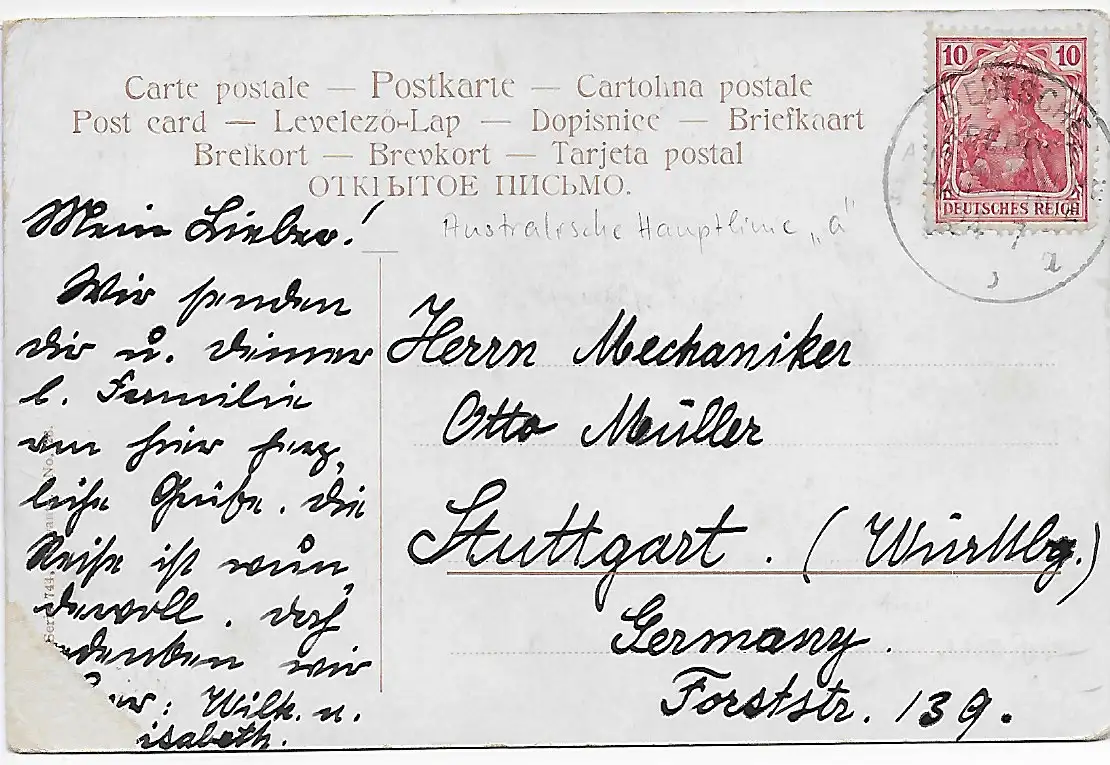 Carte postale — Postkarte — Cartolina postale
Post card — Levelező-Lap — Dopisnice — Briefkaart
Brefkort — Brevkort — Tarjeta postal
ОТКРЫТОЕ ПИСЬМО.
10 10
DEUTSCHES REICH
DEUTSCHE
Australische Hauptlinie „a"
Mein Lieber!
Wir senden
dir u. deiner
l. Familie
von hier herz,
liche Grüße. Die
Reise ist wun,
dervoll. Doch
denken wir
Wilh. u.
isabeth.
Herrn Mechaniker
Otto Müller
Stuttgart. (Württbg.)
Germany.
Forststr. 139.